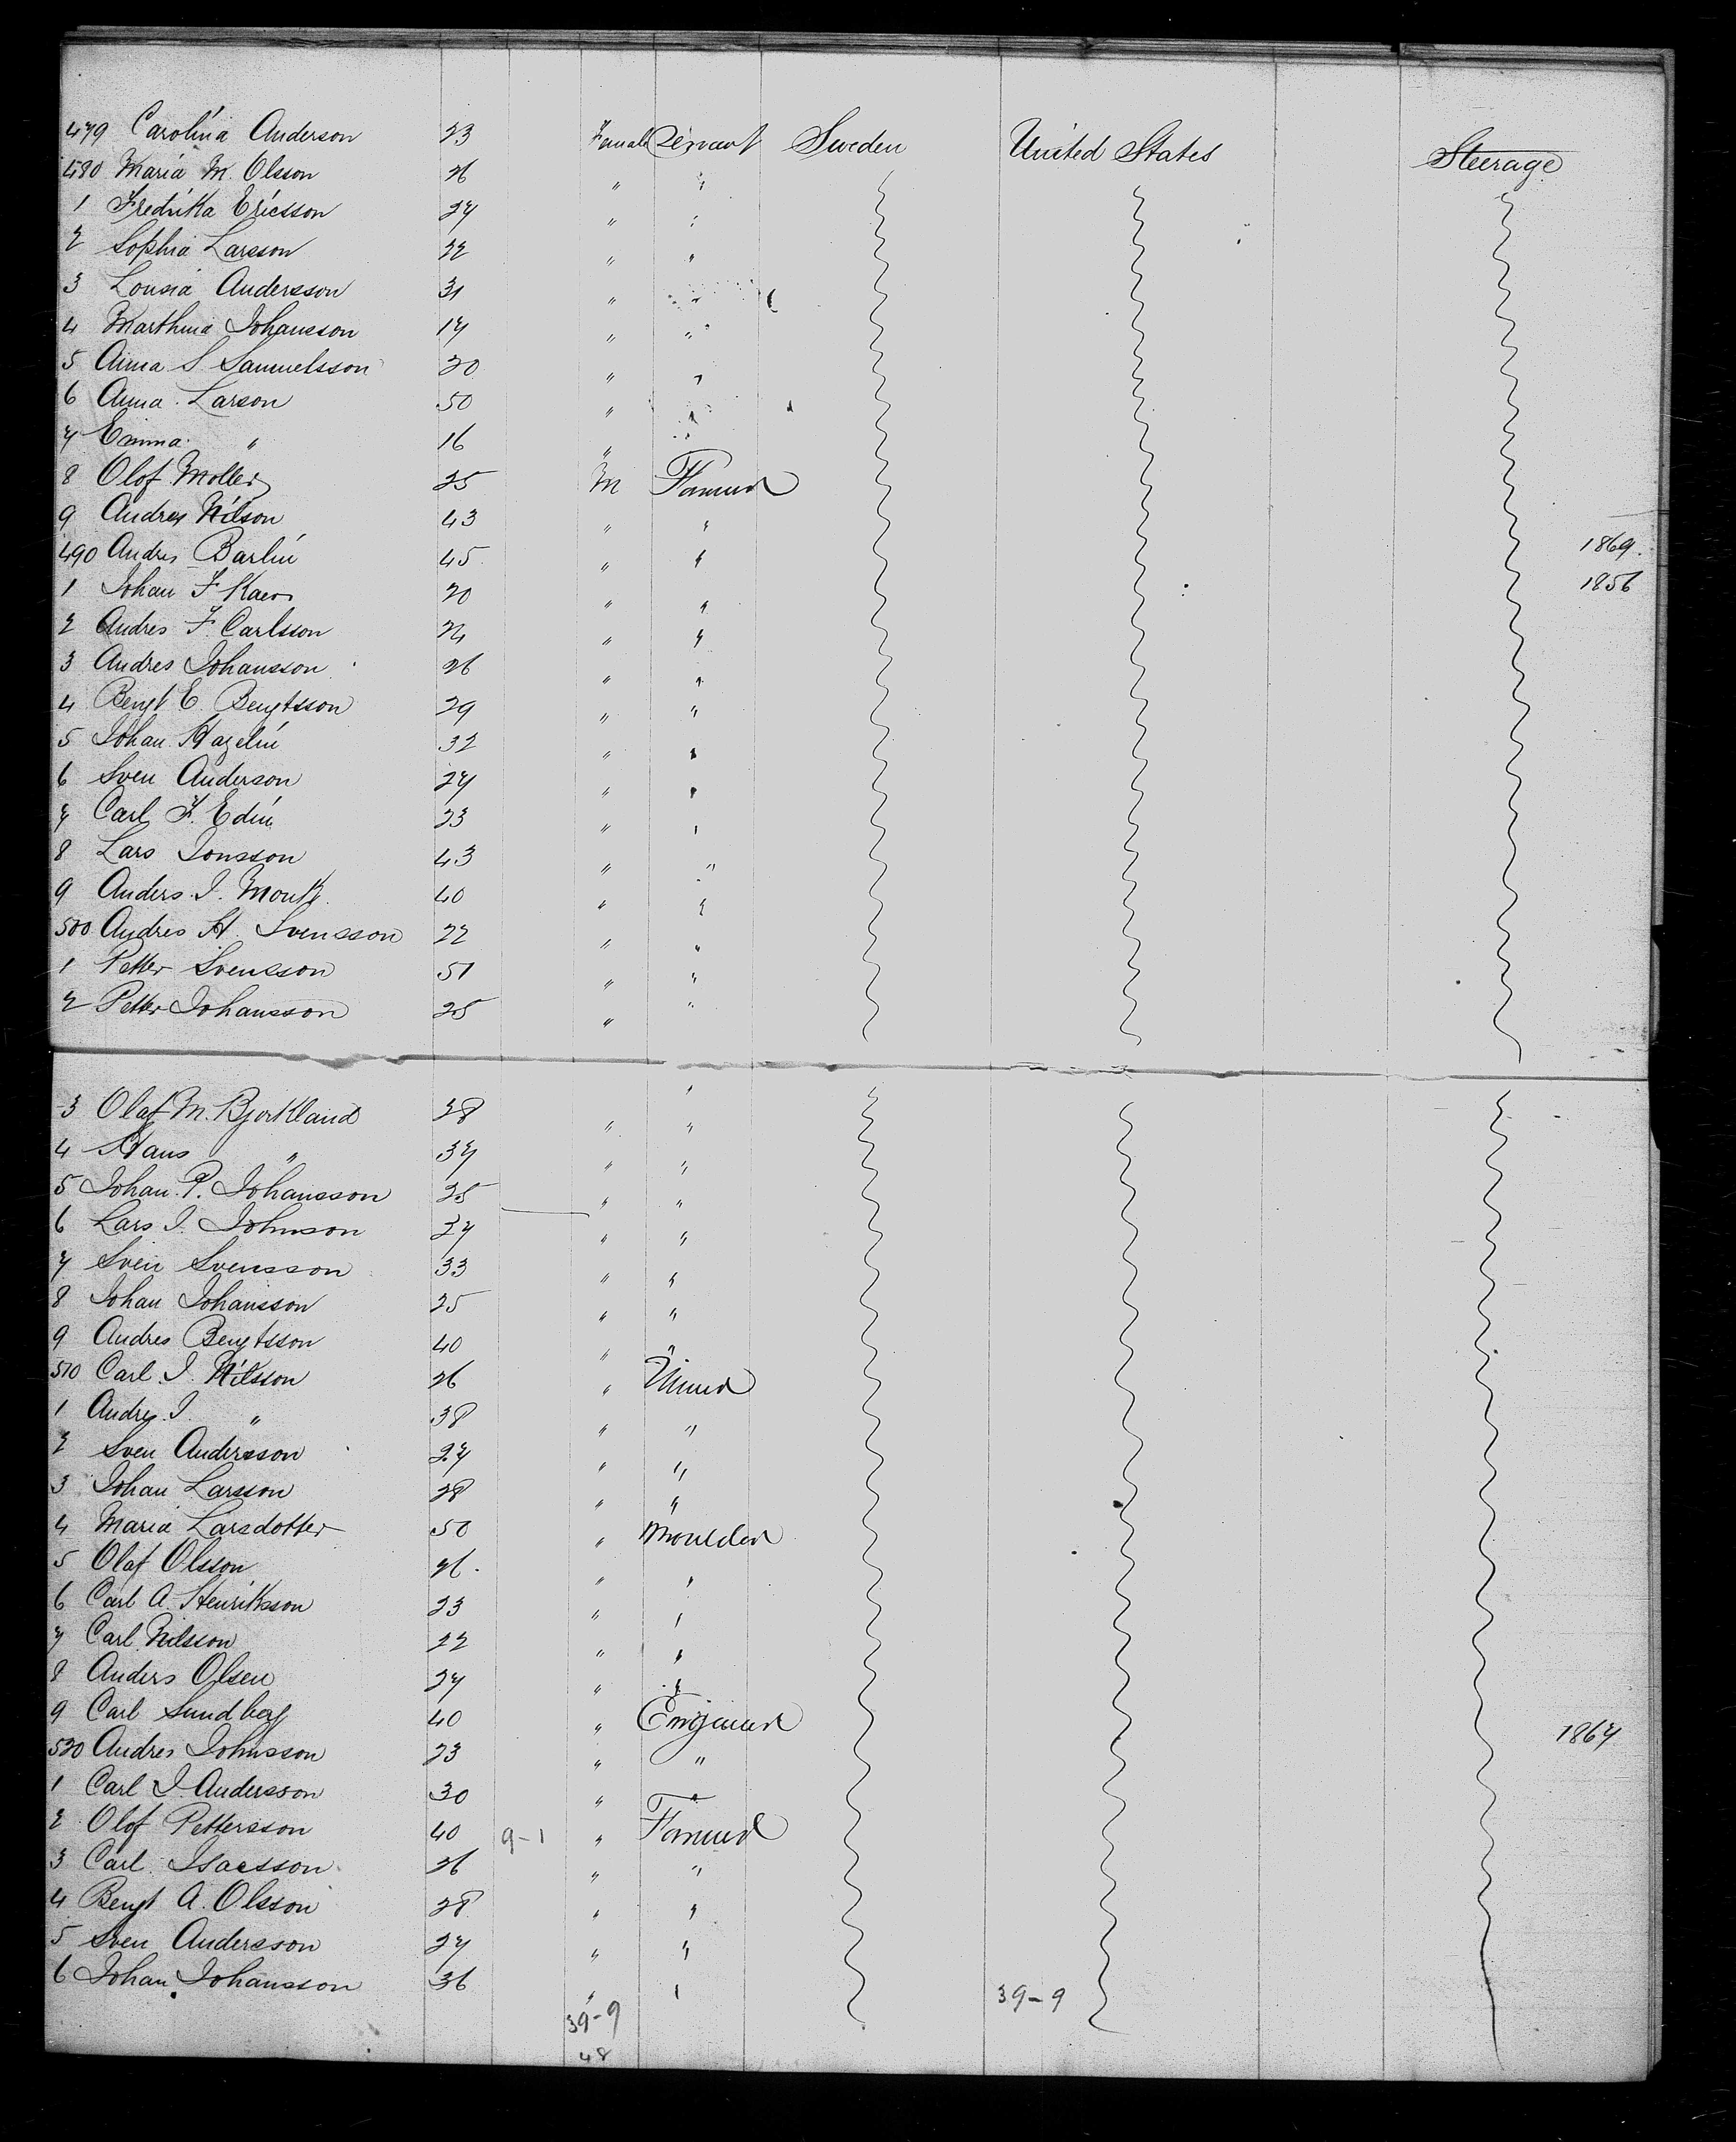 479 Carolina Anderson 23 Female Servant Sweden United States Steerage
480 Maria M. Olsson 26 " "
1 Fredrika Ericsson 27 " "
2 Sophia Larsson 22 " "
3 Lousia Andersson 31 " "
4 Marthina Johansson 17 " "
5 Anna S Samuelsson 20 " "
6 Anna Larson 50 " "
7 Emma " 16 " "
8 Olof Moller 25 M Farmer
9 Andres Nilson 43 " "
490 Andres Barlin 45 " " 1869.
1 Johan F 20 " " 1856
2 Andres F. Carlsson 24 " "
3 Andres Johansson 26 " "
4 Bengt E. Bengtsson 29 " "
5 Johan Hazelin 32 " "
6 Sven Anderson 27 " "
7 Carl F. Edin 23 " "
8 Lars Jonsson 43 " "
9 Anders J. Monk 40 " "
500 Andres H. Svensson 22 " "
1 Petter Svensson 51 " "
2 Petter Johansson 25 " "
3 Olaf M. Bjorkland 38 " "
4 Hans " 37 " "
5 Johan P. Johansson 25 " "
6 Lars J. Johnson 27 " "
7 Sven Svensson 33 " "
8 Johan Johansson 25 " "
9 Andres Bengtsson 40 " "
510 Carl J. Nilsson 26 " Miner
1 Andres J. " 38 " "
2 Sven Andersson 27 " "
3 Johan Larsson 28 " "
4 Maria Larsdotter 50 " Moulder
5 Olaf Olsson 26 " "
6 Carl A. Henriksson 23 " "
7 Carl Nilsson 22 " "
8 Anders Olsen 27 " "
9 Carl Sundberg 40 " Engineer 1867
520 Andres Johnsson 23 " "
1 Carl J. Andersson 30 " "
2 Olof Pettersson 40 9-1 " Farmer
3 Carl Isacsson 26 " "
4 Bengt A. Olsson 28 " "
5 Sven Andersson 27 " "
6 Johan Johansson 36 " "
39-9 39-9
48